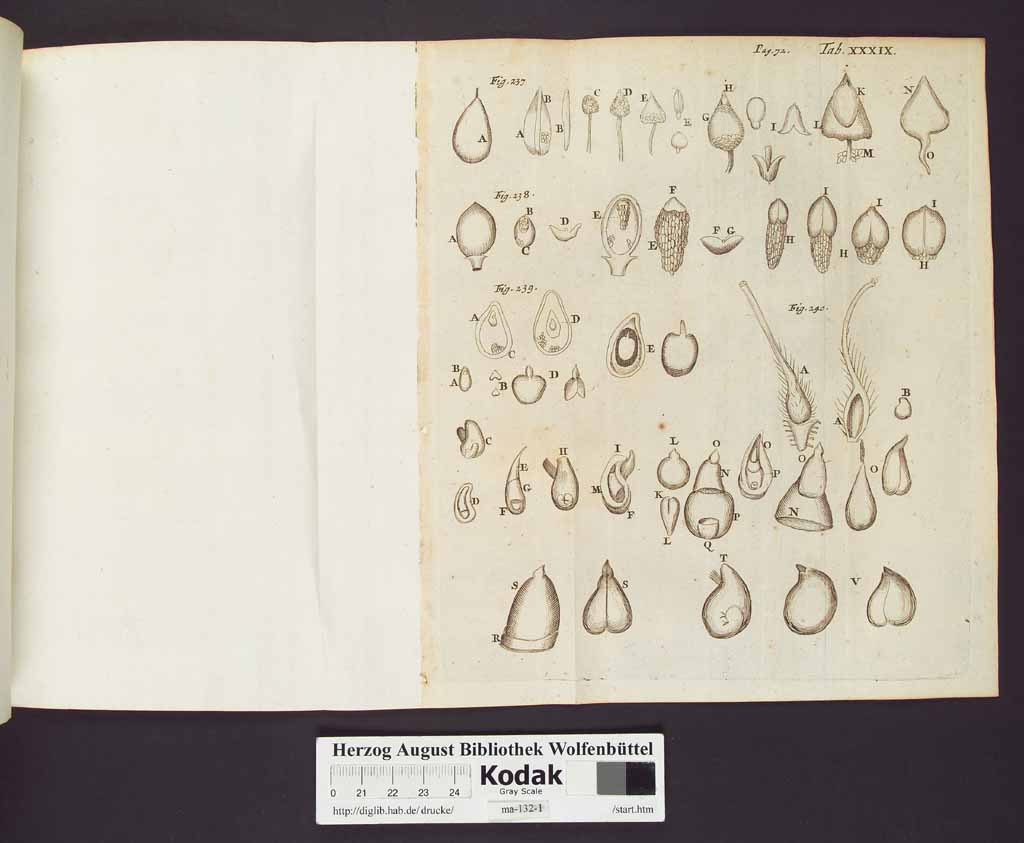 Pag. 72. Tab. XXXIX.
Fig. 237
A A B B C D E E G H I L K M N O
Fig. 238.
A B C D E E F F G H I H I I H
Fig. 239. Fig. 240.
A C D E A A B
B A B D
C D E G F H I M F L K L O N P Q O P O N O
S R S T V
Herzog August Bibliothek Wolfenbüttel
0 21 22 23 24
Kodak
Gray Scale
http://diglib.hab.de/drucke/ ma-132-1 /start.htm